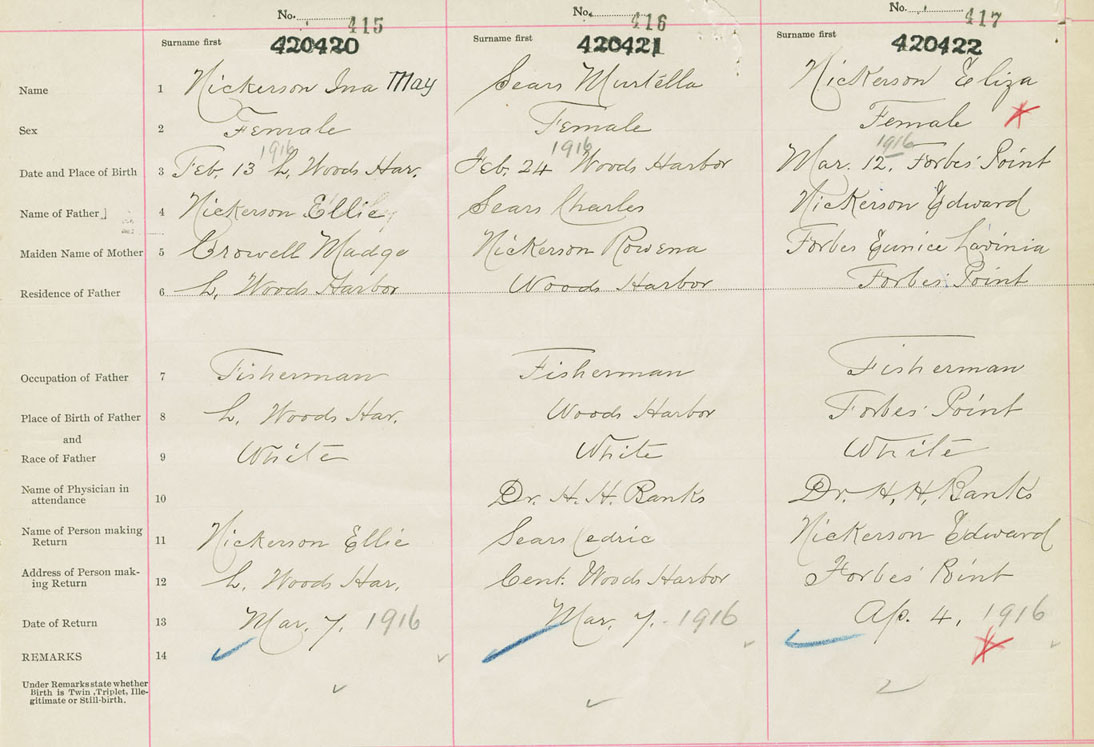 No. 415 No. 416 No. 417
Surname first 420420 Surname first 420421 Surname first 420422
Name 1 Nickerson Ina May Sears Murtella Nickerson Eliza
Sex 2 Female Female Female
1916 1916 1916
Date and Place of Birth 3 Feb. 13 L. Woods Har. Feb. 24 Woods Harbor Mar. 12. Forbes' Point
Name of Father 4 Nickerson Ellie Sears Charles Nickerson Edward
Maiden Name of Mother 5 Crowell Madge Nickerson Rowena Forbes Eunice Lavinia
Residence of Father 6 L. Woods Harbor Woods Harbor Forbes' Point
Occupation of Father 7 Fisherman Fisherman Fisherman
Place of Birth of Father 8 L. Woods Har. Woods Harbor Forbes' Point
and
Race of Father 9 White White White
Name of Physician in
attendance 10 Dr. H. H. Banks Dr. H. H. Banks
Name of Person making
Return 11 Nickerson Ellie Sears Cedric Nickerson Edward
Address of Person mak-
ing Return 12 L. Woods Har. Cent. Woods Harbor Forbes' Point
Date of Return 13 Mar. 7, 1916 Mar. 7. 1916 Ap. 4, 1916
REMARKS 14
Under Remarks state whether
Birth is Twin, Triplet, Ille-
gitimate or Still-birth.